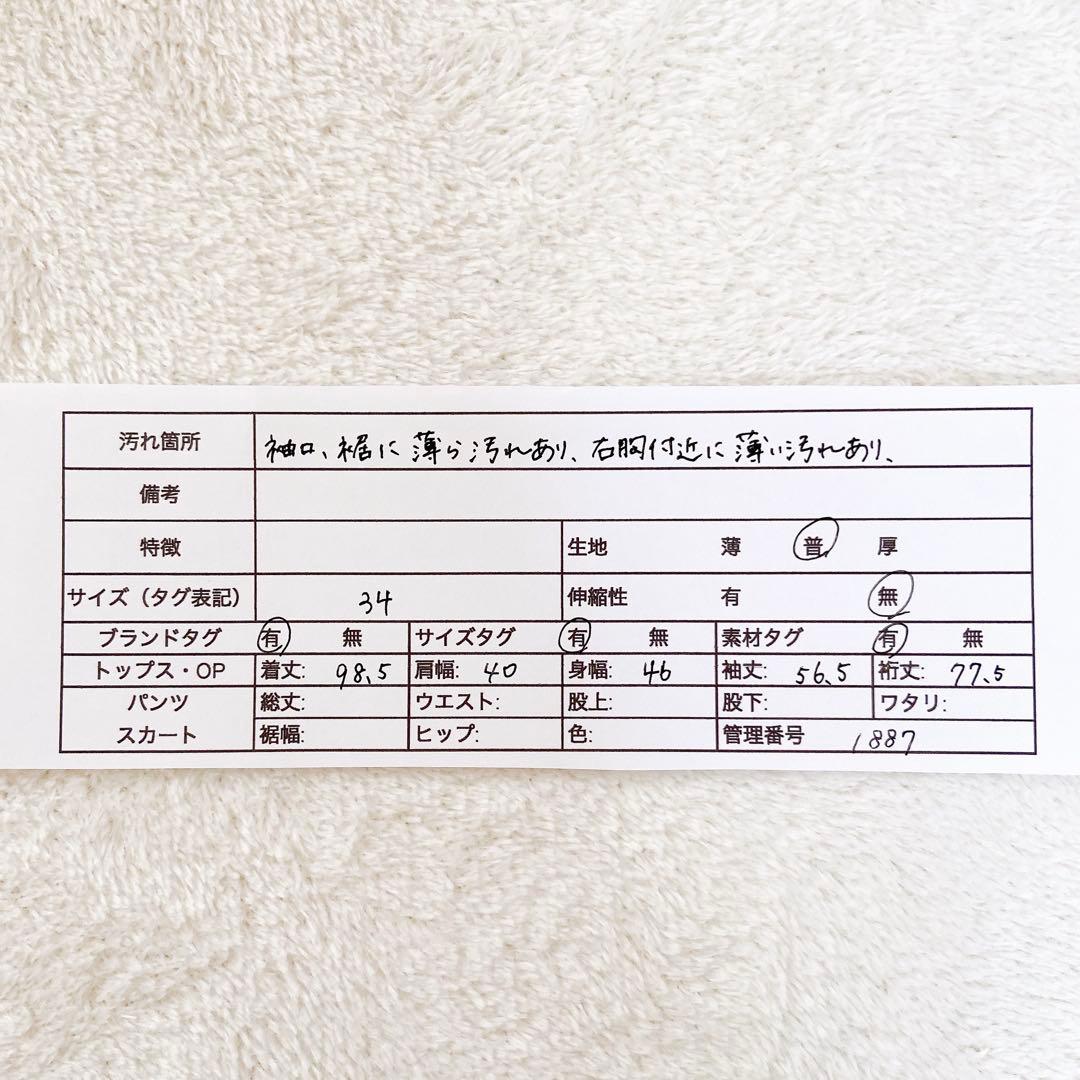 汚れ箇所 袖口、裾に薄ら汚れあり、右胸付近に薄い汚れあり、
備考
特徴 生地 薄 普 厚
サイズ（タグ表記） 34 伸縮性 有 無
ブランドタグ 有 無 サイズタグ 有 無 素材タグ 有 無
トップス・OP 着丈: 98.5 肩幅: 40 身幅: 46 袖丈: 56.5 裄丈: 77.5
パンツ 総丈: ウエスト: 股上: 股下: ワタリ:
スカート 裾幅: ヒップ: 色: 管理番号 1887